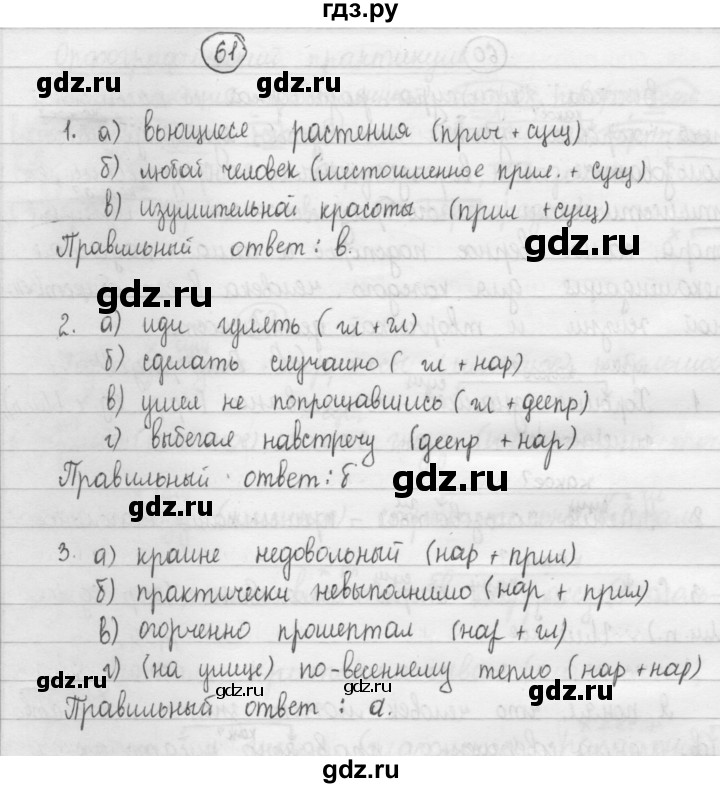 гдз.ру
61
gdz.ru gdz.ru
1. а) вьющиеся растения (прич + сущ)
б) любой человек (местоименное прил. + сущ)
в) изумительной красоты (прил + сущ)
Правильный ответ: в.
gdz.ru
gdz.ru
2. а) иди гулять (гл + гл)
gdz.ru
б) сделать случайно (гл + нар)
в) ушел не попрощавшись (гл + деепр)
г) выбегая навстречу (дeепр + нар)
Правильный ответ: б
gdz.ru
gdz.ru
3. а) крайне недовольный (нар + прил)
б) практически невыполнимо (нар + прил)
в) огорченно прошептал (нар + гл)
gdz.ru
г) (на улице) по-весеннему тепло (нар + нар)
gdz.ru gdz.ru
Правильный ответ: а.
gdz.ru